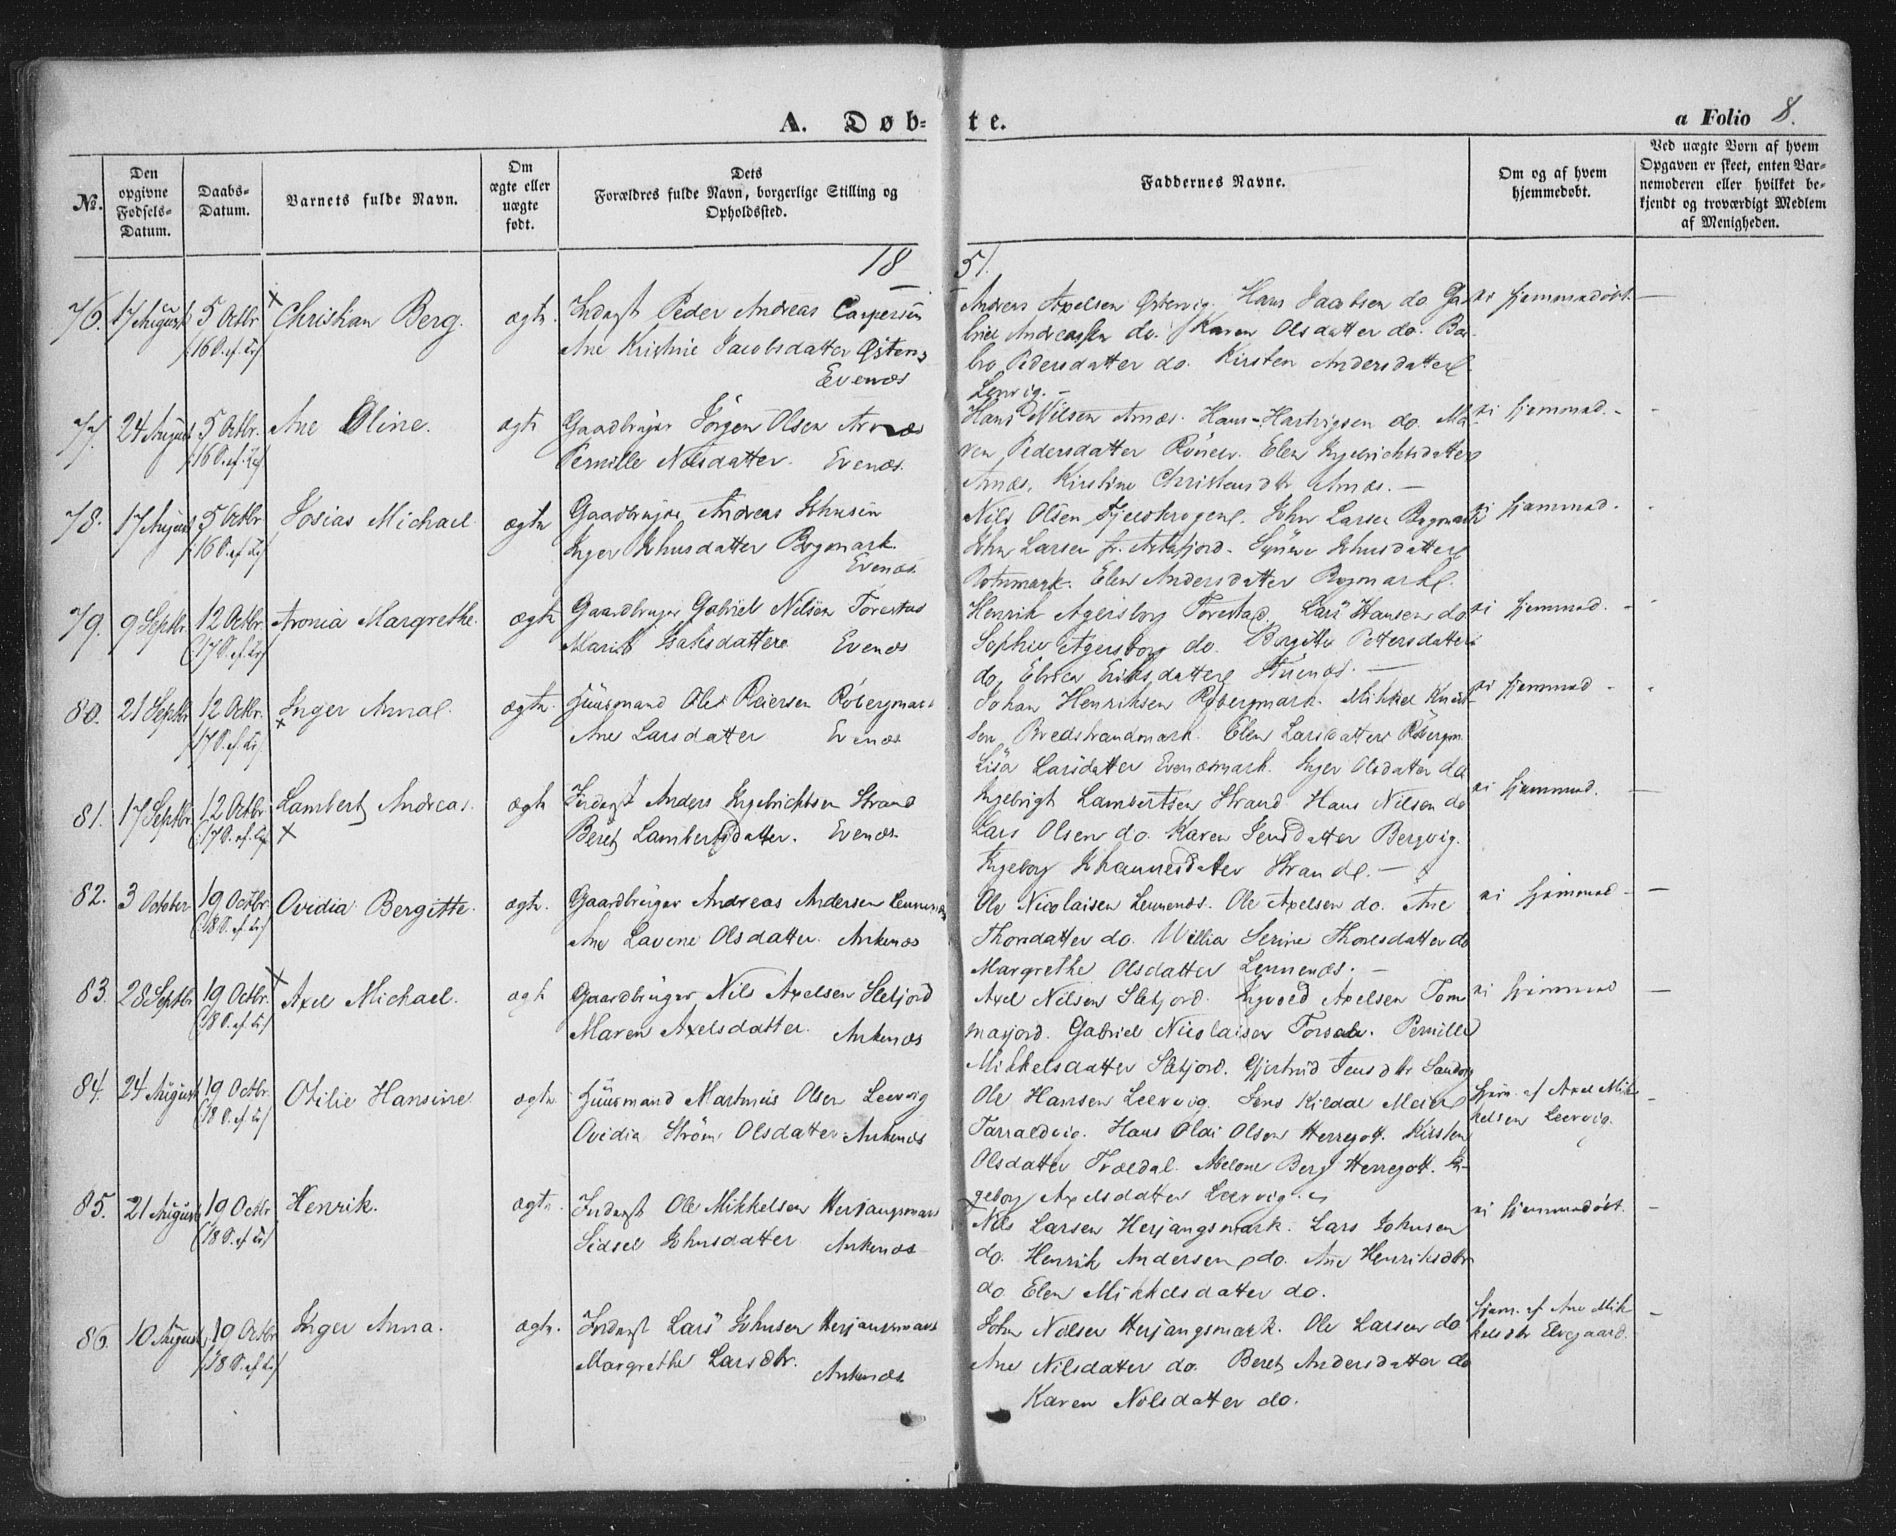 A. Døb-
te.
a Folio 8.
№.
Den opgivne Fødsels-Datum.
Daabs-Datum.
Barnets fulde Navn.
Om ægte eller uægte født.
Dets Forældres fulde Navn, borgerlige Stilling og Opholdssted.
Faddernes Navne.
Om og af hvem hjemmedøbt.
Ved uægte Born af hvem Opgaven er skeet, enten Barnemoderen eller hvilket bekjendt og troværdigt Medlem af Menigheden.
18
51.
76. 17 August 5 Octbr Christian Berg. ægte Inderst Peder Andreas Caspersen
16 S. ef. Tr. Ane Kristine Jacobsdatter Østervig
Evenæs
Andreas Axelsen Østervig. Hans Jacobsen do. Ga-
briel Andreassen do. Karen Olsdatter do. Ba-
bro Pedersdatter do. Kirsten Andersdatter
Lenvig. –
ei hjemmedøbt. –
77. 24 August 5 Octbr. Ane Oline. ægte Gaardbruger Jørgen Olsen Arnæs
16 S. ef. Tr. Pernille Nilsdatter. Evenæs.
Hans Nilsen Arnæs. Hans Hartvigsen do. Ma-
ren Pedersdatter Elen Ingebrichtsdatter
Arnæs. Kirstine Christensdtr Arnæs. –
ei hjemmed. –
78. 17 August 5 Octbr Josias Michael. ægte Gaardbruger Andreas Johnsen
16 S. ef. Tr. Inger Johnsdatter Bogmark.
Evenæs
Nils Olsen Fjeldkrogen. John Larsen Bogmark
John Larsen fr. Astafjord. Johnsdatter
Botnmark. Elen Andersdatter Bogmark.
ei hjemmed.
79. 9 Septbr. 12 Octbr. Aronia Margrethe. ægte Gaardbruger Gabriel Nilsen Forestad
17 S. ef. Tr. Marit Isaksdatter Evenæs
Henrik Agersborg Forestad. Lars Hansen do
Sophie Agersborg do. Birgitte Pettersdatter
do. Eriksdatter –
ei hjemmed. –
80. 21 Septbr 12 Octbr. Inger Anna. ægte. Huusmand Ole Reiersen Røbergmark
17 S. ef. Tr. Ane Larsdatter Evenæs
Johan Henriksen Røbergmark. Mikkel Knud-
sen Bredstrandmark. Elen Larsdatter Røbergm.
Lisa Larsdatter Evenæsmark. Inger Olsdatter do
ei hjemmed –
81. 17 Septbr. 12 Octbr Lambert Andreas. ægte Inderst Anders Ingebrichtsen Strand
17 S. ef. Tr. Beret Lambertsdatter. Evenæs
Ingebrigt Lambertsen Strand Hans Nilsen do
Lars Olsen do. Karen Jensdatter Bergvig.
Ingeborg Johannesdatter Strand. –
ei hjemmed. –
82. 3 October 19 Octbr Ovidia Bergitte. ægte. Gaardbruger Andreas Andersen Lennenæs
18 S. ef. Tr. Ane Lavine Olsdatter. Ankenæs
Ole Nicolaisen Lennenæs. Ole Axelsen do. Ane
Thorsdatter do. Willia Serine Thorlsdatter do
Margrethe Olsdatter Lennenæs. –
ei hjemmed –
83. 28 Septbr 19 Octbr. Axel Michael. ægte Gaardbruger Nils Axelsen Sletjord
18 S. ef. Tr. Maren Axelsdatter. Ankenæs
Axel Nilsen Sletjord. Ingvold Axelsen Tom-
masjord. Gabriel Nicolaisen Pernille
Mikkelsdatter Sletjord. Gjertrud Jensdtr
ei hjemmed –
84. 24 August 19 Octbr Otilie Hansine ægte Huusmand Martinus Olsen Leervig
18 S. ef. Tr. Ovidia Strøm Olsdatter Ankenæs
Ole Hansen Leervig. Jens Kildal Meier
Tarraldvig. Hans Olai Olsen Herregott. Kirsten
Olsdatter Trældal. Berg Herregott. In-
geborg Axelsdatter Leervig.
hjem. af Axel Mik-
kelsen Leervig. –
85. 21 August 19 Octbr Henrik. ægte. Inderst Ole Mikkelsen Herjangsmark
18 S. ef. Tr. Sidsel Johnsdatter Ankenæs
Nils Larsen Herjangsmark. Lars Johnsen
do. Henrik Andersen do. Ane Henriksdtr
do Elen Mikkelsdatter do.
ei hjemmedøbt. –
86. 10 August 19 Octbr Inger Anna. ægte. Inderst Lars Johnsen Herjangsmark
18 S. ef. Tr. Margrethe Larsdtr. Ankenæs
John Nilsen Herjangsmark. Ole Larsen do
Ane Nilsdatter do. Beret Andersdatter do
Karen Nilsdatter do.
hjem. af Ane Mik-
kelsdtr Elvegaard. –